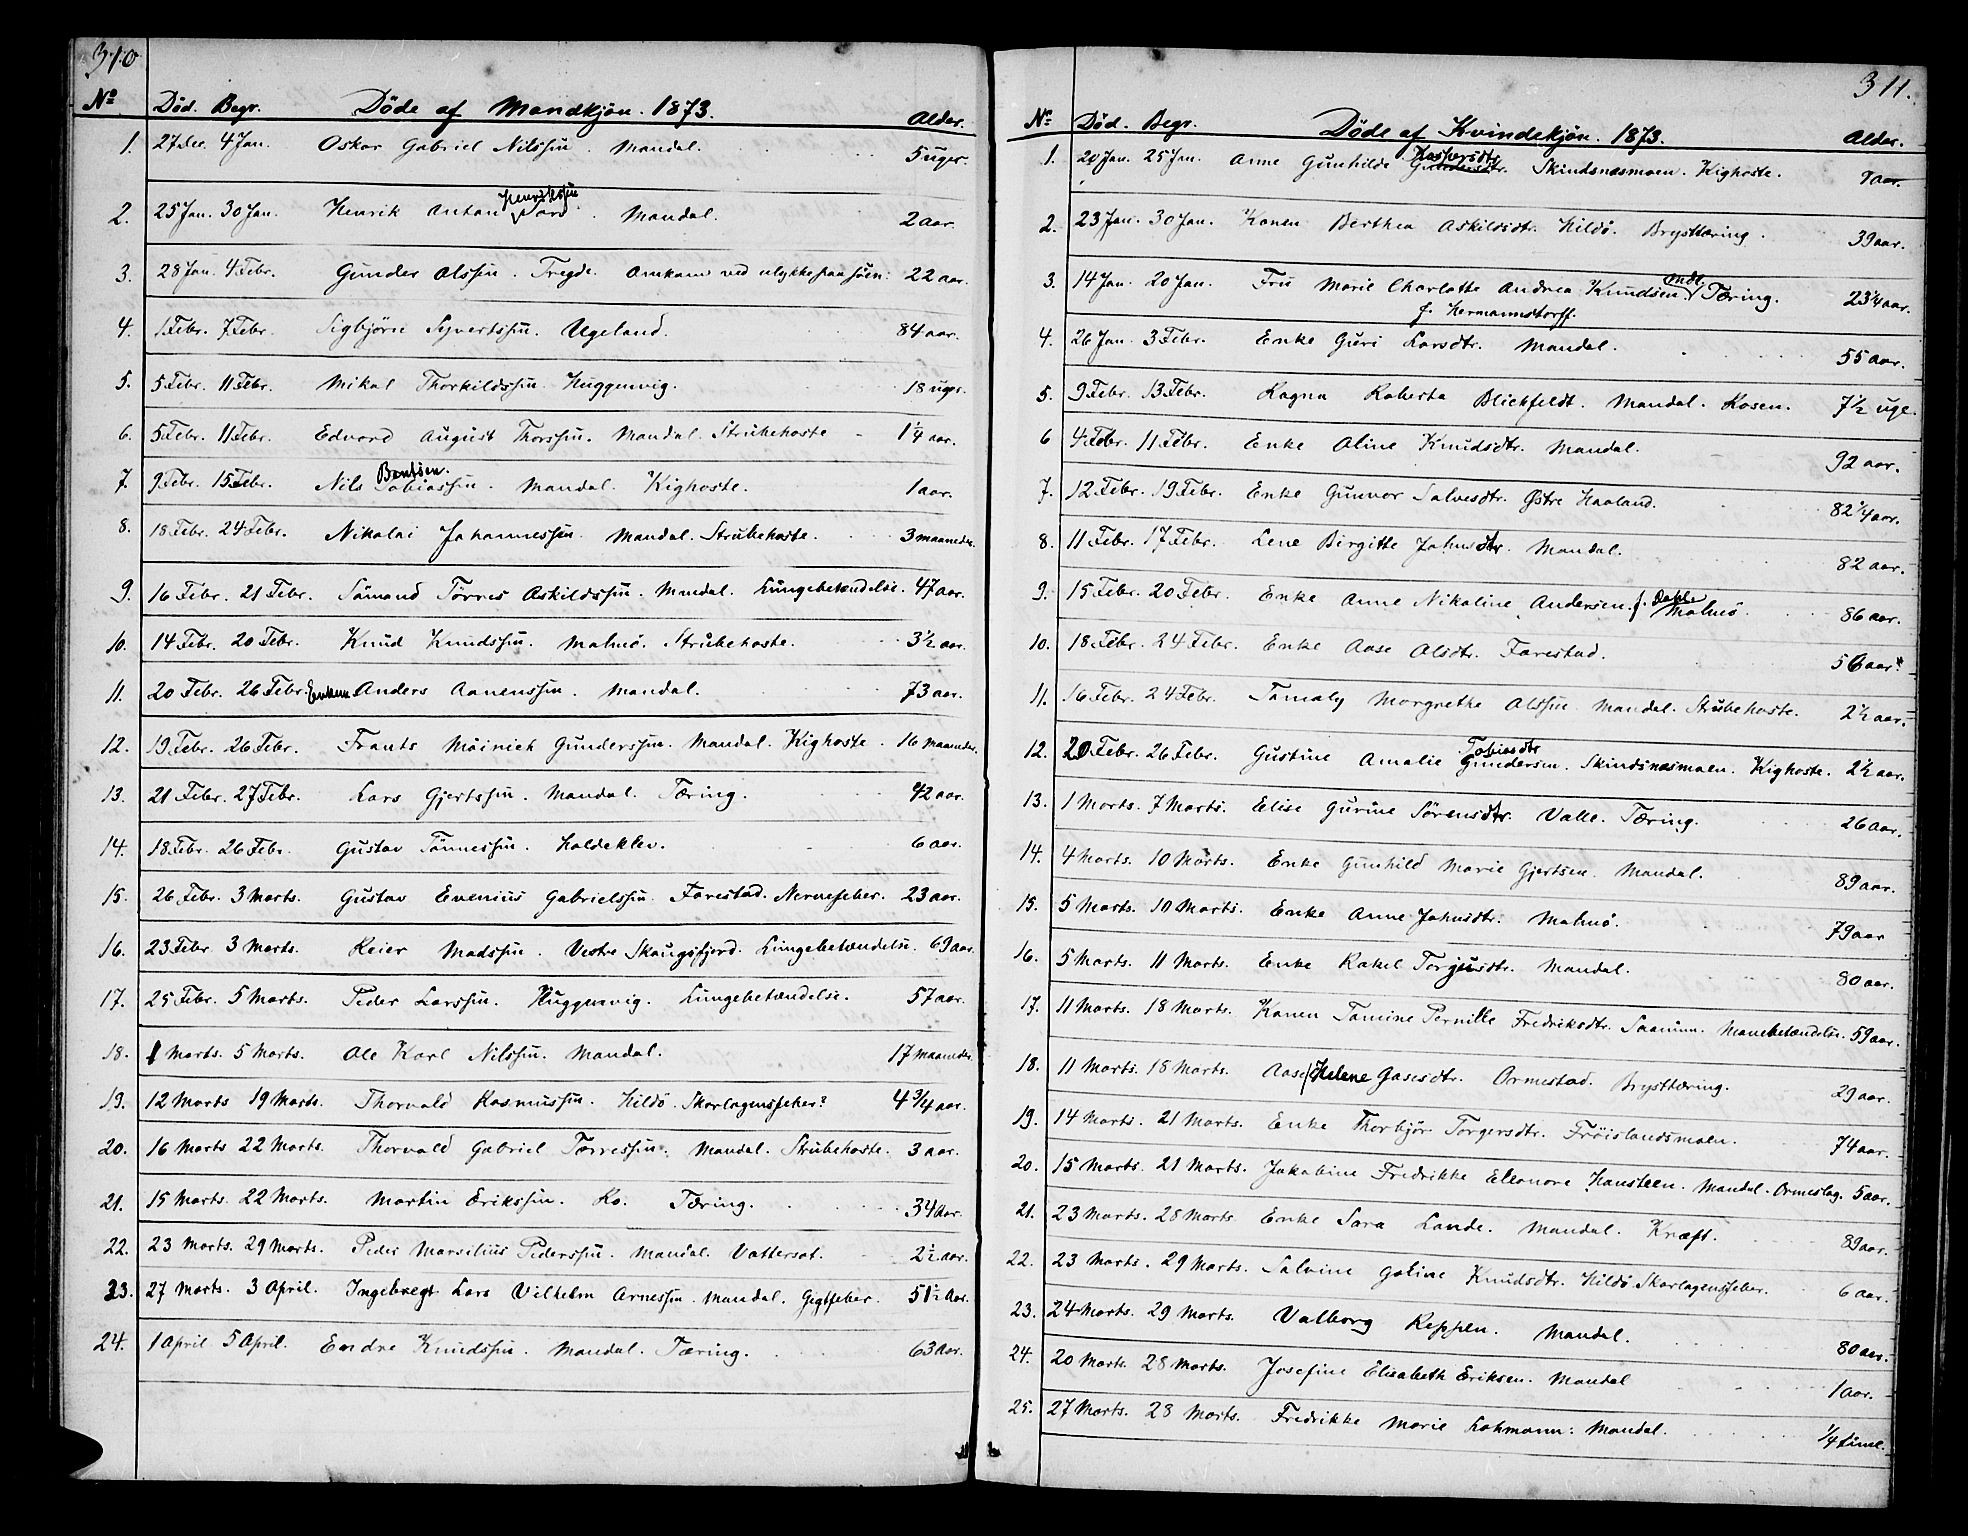 310
No Död. Begr. Döde af Mandkjön. 1873. Alder.
1. 27 Dec. 4 Jan. Oskar Gabriel Nilssen. Mandal. 5 uger.
Henrikssen
2. 25 Jan. 30 Jan. Henrik Anton. Mandal. 2 aar.
3. 28 Jan. 4 Febr. Gunder Olssen. Tregde. Omkom ved ulykke paa söen. 22 aar.
4. 1 Febr. 7 Febr. Sigbjörn Syvertssen. Ugeland. 84 aar.
5. 5 Febr. 11 Febr. Mikal Thorkildssen. Huggenvig. 18 uger.
6. 5 Febr. 11 Febr. Edvard August Thorssen. Mandal. Strubehoste 1 1/4 aar.
Bentsen.
7. 9 Febr. 15 Febr. Nils Tobiassen. Mandal. Kighoste. 1 aar.
8. 18 Febr. 24 Febr. Nikolai Johannessen. Mandal. Strubehoste. 3 maaneder.
9. 16 Febr. 21 Febr. Sömand Törres Askildssen. Mandal. Lungebetændelse. 47 aar.
10. 14 Febr. 20 Febr. Knud Knudssen. Malmö. Strubehoste. 3 1/2 aar.
11. 20 Febr. 26 Febr. Enkem. Anders Aanenssen. Mandal. 73 aar.
12. 19 Febr. 26 Febr. Frants Möinich Gunderssen. Mandal. Kighoste. 16 maaneder.
13. 21 Febr. 27 Febr. Lars Gjertssen. Mandal. Tæring. 42 aar.
14. 18 Febr. 26 Febr. Gustav Tönnessen. Holdeklev. 6 aar.
15. 26 Febr. 3 Marts. Gustav Evenius Gabrielssen. Farestad. Nervefeber. 23 aar.
16. 23 Febr 3 Marts. Reier Madssen. Vestre Skaugsfjord. Lungebetændelse. 69 aar.
17. 25 Febr. 5 Marts. Peder Larssen. Huggenvig. Lungebetændelse. 57 aar.
18. 1 Marts. 5 Marts. Ole Karl Nilssen. Mandal. 17 maaneder.
19. 12 Marts 19 Marts. Thorvald Rasmussen. Hildö. Skarlagensfeber? 4 3/4 aar.
20. 16 Marts 22 Marts. Thorvald Gabriel Torressen. Mandal. Strubehoste. 3 aar.
21. 15 Marts. 22 Marts. Martin Erikssen. Ro. Tæring. 34 aar.
22. 23 Marts. 29 Marts. Peder Marsilius Pederssen. Mandal. Vattersot. 2 1/2 aar.
23. 27 Marts. 3 April. Ingebregt Lars Vilhelm Arnessen. Mandal. Gigtfeber. 51 1/2 aar.
24. 1 April. 5 April. Endre Knudssen. Mandal. Tæring. 63 aar.
311.
No Död. Begr. Döde af Kvindekjön. 1873. Alder.
Kaspersdtr
1. 20 Jan. 25 Jan. Anne Gunhilde Gundersdtr. Skindsnæsmoen. Kighoste. 9 aar.
2. 23 Jan. 30 Jan. Konen Berthea Askildsdtr. Hildö. Brysttæring. 39 aar.
3. 14 Jan. 20 Jan. Fru Marie Charlotte Andrea Knudsen. Tæring. 23 1/4 aar.
f. Hermannstorff.
4. 26 Jan. 3 Febr. Enke Guri Larsdtr. Mandal. 55 aar.
5. 9 Febr. 13 Febr. Ragna Roberta Blichfeldt. Mandal. Rosen. 7 1/2 uge.
6 4 Febr. 11 Febr. Enke Oline Knudsdtr. Mandal. 92 aar.
7. 12 Febr. 19 Febr. Enke Gunvor Salvesdtr. Østre Haaland. 82 1/4 aar.
8. 11 Febr. 17 Febr. Lene Birgitte Johnsdtr. Mandal. 82 aar.
9. 15 Febr. 20 Febr. Enke Anne Nikoline Andersen f. Dahl. Malmö. 86 aar.
10. 18 Febr. 24 Febr. Enke Aase Olsdtr. Farestad. 56 aar.
11. 16 Febr. 24 Febr. Tamaly Margrethe Olssen Mandal. Strubehoste. 2 1/2 aar.
Tobiasdtr
12. 20 Febr. 26 Febr. Gustine Amalie Gundersen. Skindsnæsmoen. Kighoste. 2 1/2 aar.
13. 1 Marts. 7 Marts. Elise Gurine Sörensdtr. Valle. Tæring. 26 aar.
14. 4 Marts. 10 Marts. Enke Gunhild Marie Gjertsen. Mandal. 89 aar.
15. 5 Marts. 10 Marts. Enke Anne Johnsdtr. Malmö. 79 aar
16. 5 Marts. 11 Marts. Enke Rakel Torgiusdtr. Mandal. 80 aar.
17. 11 Marts. 18 Marts. Konen Tomine Pernille Fredriksdtr. Saanum. Mavebetændelse. 59 aar.
18. 11 Marts. 18 Marts. Aase Helene Aasesdtr. Ormestad. Brysttæring. 29 aar.
19. 14 Marts. 21 Marts. Enke Thorbjör Torgersdtr. Fröislandsmoen. 74 aar.
20. 15 Marts. 21 Marts. Jakobine Fredrikke Eleonore Hansteen. Mandal. Ormeslag. 5 aar.
21. 23 Marts. 28 Marts Enke Sara Lande. Mandal. Kræft. 89 aar.
22. 23 Marts. 29 Marts. Salvine Goline Knudsdtr. Hildö. Skarlagensfeber. 6 aar.
23. 24 Marts. 29 Marts. Valborg Reppen. Mandal. 80 aar.
24. 20 Marts. 28 Marts. Josefine Elisabeth Eriksen. Mandal 1 aar.
25. 27 Marts. 28 Marts. Fredrikke Marie Lohmann. Mandal. 1/4 time.